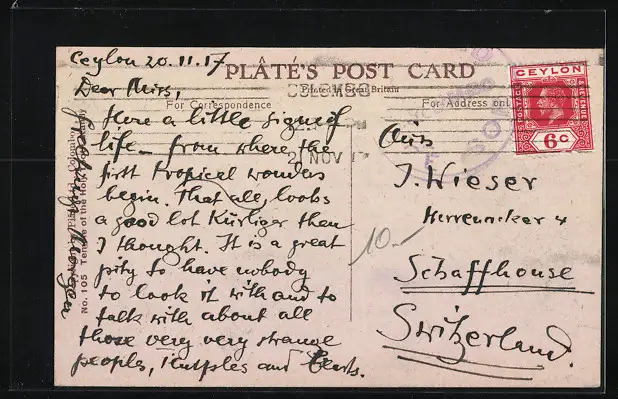 Ceylon 20.11.17
PLÂTÉ'S POST CARD
Printed in Great Britain
COLOMBO
For Correspondence
For Address only
CEYLON
POSTAGE
REVENUE
6c
NOV 17
Dear Miss,
Here a little sign of
life – from where the
first tropical wonders
begin. That all, looks
a good lot then
I thought. It is a great
pity to have nobody
to look it with and to
talk with about all
those very very strange
peoples, and
Miss
J. Wieser
4
Schaffhouse
Switzerland.
10.–
No. 105 Temple of the